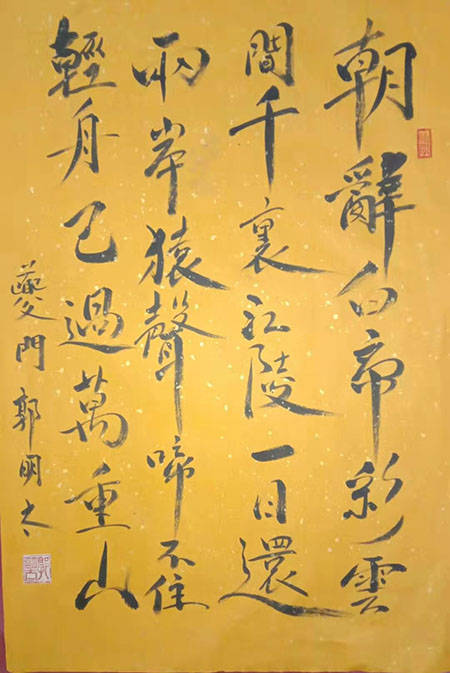 朝辭白帝彩雲
間千裏江陵一日還
兩岸猿聲啼不住
輕舟已過萬重山
夔門郭明